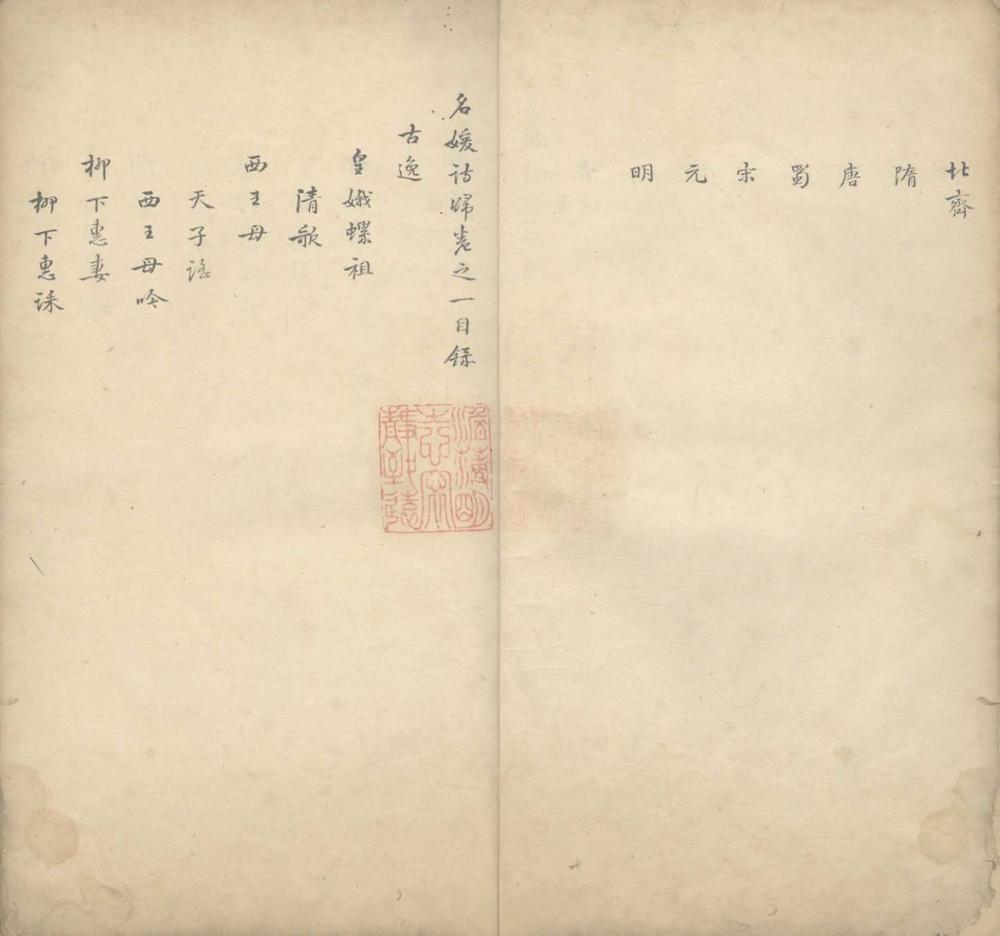 北齊
隋
唐
蜀
宋
元
明
名媛詩歸卷之一目錄
古逸
皇娥螺祖
清歌
西王母
天子謠
西王母吟
柳下惠妻
柳下惠誄
澹明
志寧
靜致遠